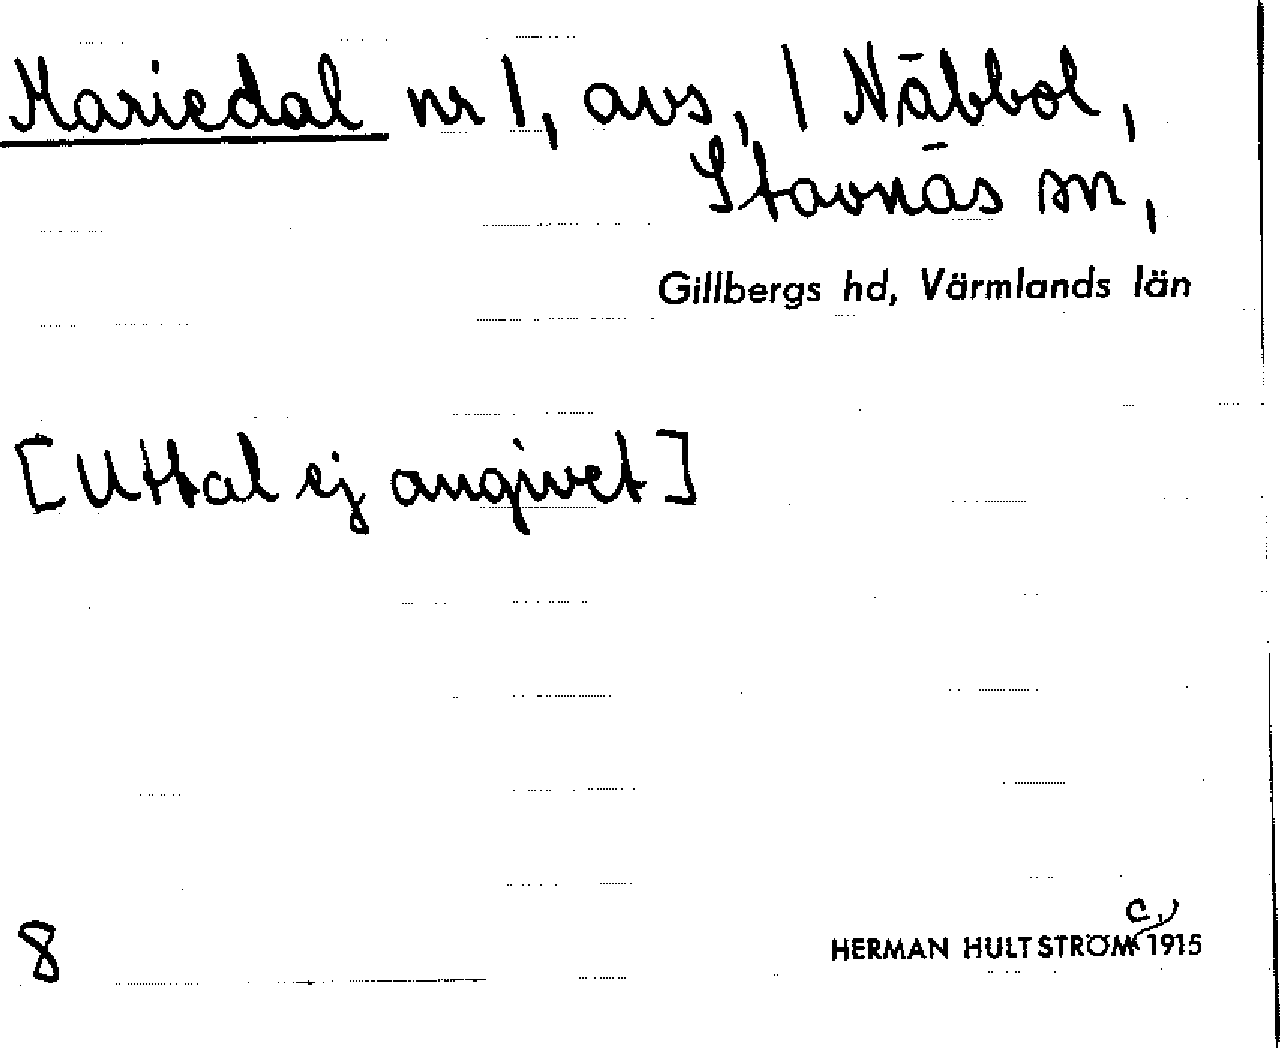 Mariedal nr 1, avs, / Näbbol,
Stavnäs sn,
Gillbergs hd, Värmlands län
[Uttal ej angivet]
8
HERMAN HULTSTRÖM c. 1915